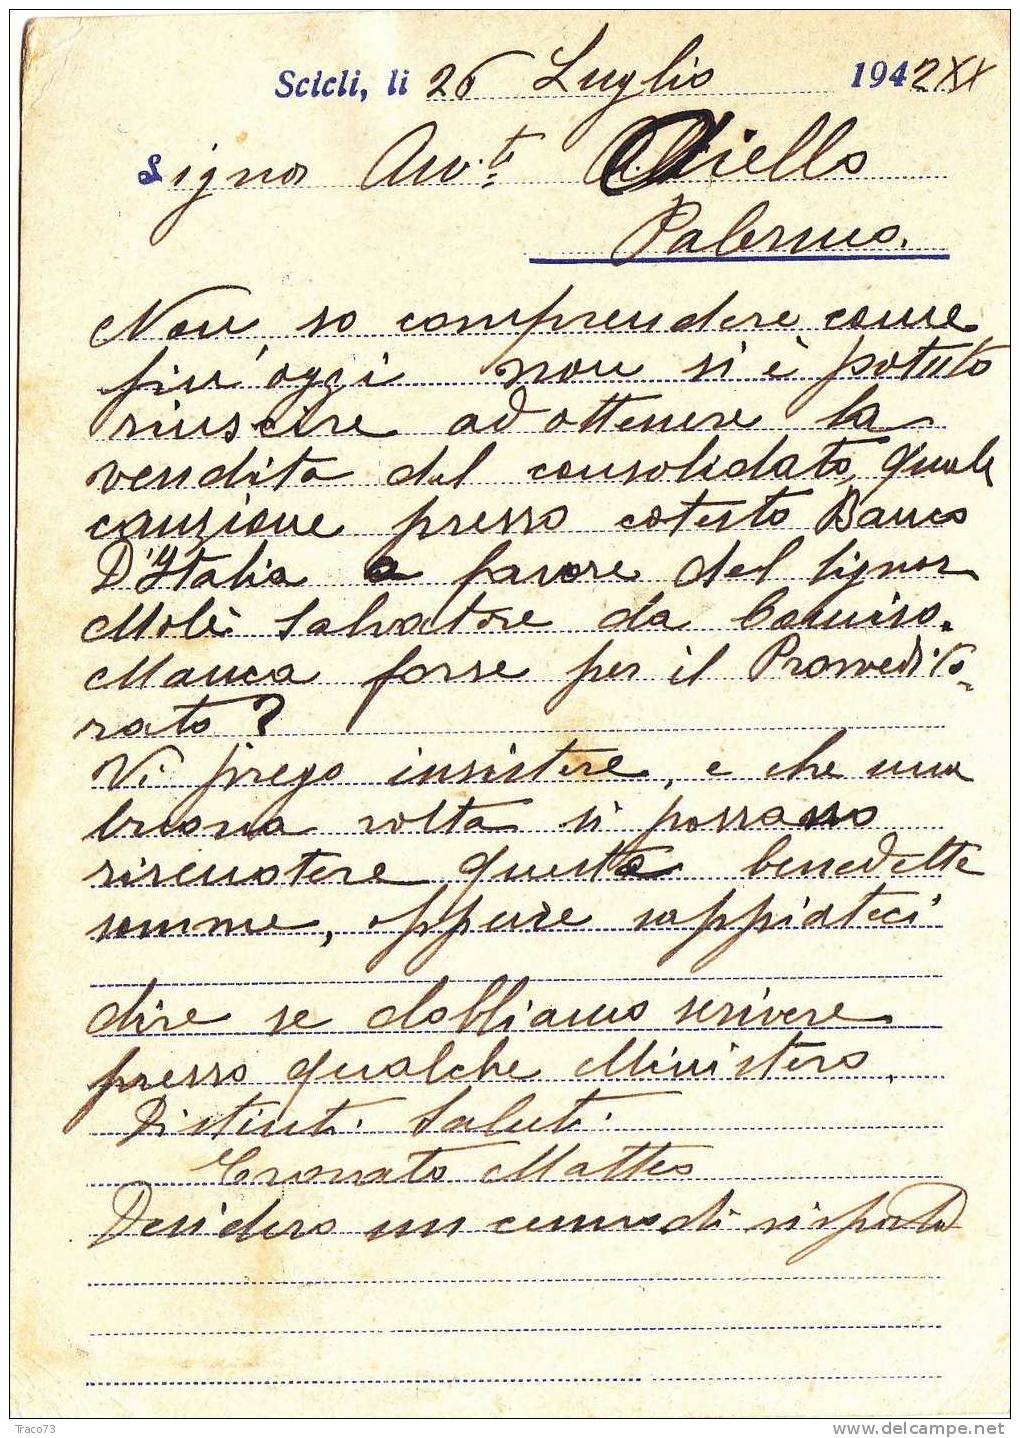 Scicli, li 26 Luglio 1942 XX
Signor Avv.ti Aiello
Palermo.
Non so comprendere come
fin'oggi non si è potuto
riuscire ad ottenere la
vendita del consolidato, quale
cauzione presso cotesto Banco
D'Italia a favore del Signor
Molè Salvatore da Comiso.
Manca forse per il Provvedito-
rato?
Vi prego insistere, e che una
buona volta si possano
riscuotere queste benedette
somme, oppure sappiateci
dire se dobbiamo scrivere
presso qualche Ministero.
Distinti Saluti
Matteo
Desidero un cenno di risposta
Traco73
delcampe.net